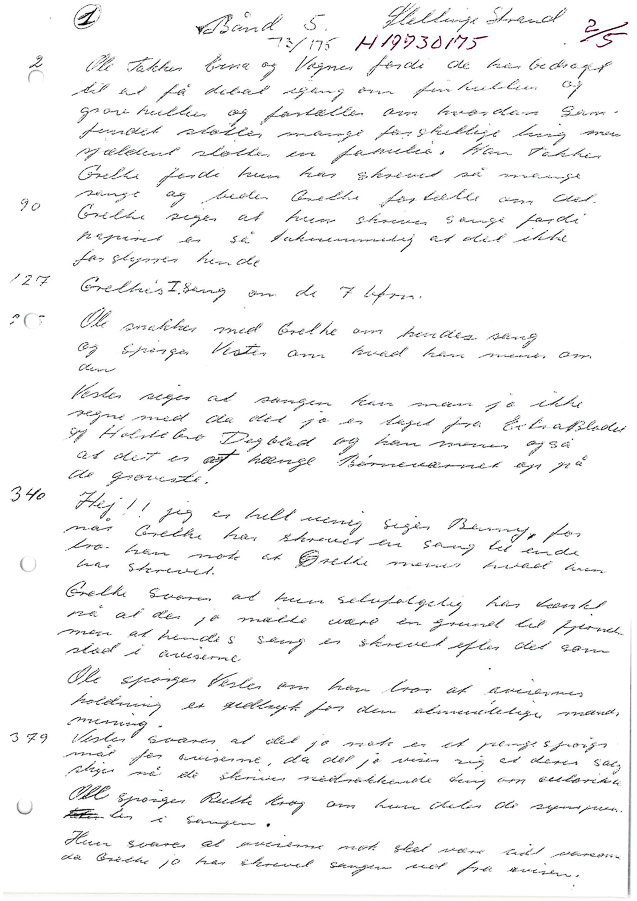 1
Bånd 5. Stellinge Strand 2/5
73/175 H19730175
2 Ole takker Erna og Vagner fordi de har bedraget
til at få debat igang om finkultur og
grovkultur og fortæller om hvordan sam-
fundet støtter mange forskellige ting men
sjældent støtter en familie. Han takker
Grethe fordi hun har skrevet så mange
sange og beder Grethe fortælle om det.
90 Grethe siger at hun skriver sange fordi
papiret er så taknemmelig at det ikke
forstyrrer hende
127 Grethes I. Sang om de 7
Ole snakker med Grethe om hendes sang
og spørger Vester om hvad han mener om
den
Vester siger at sangen kan man jo ikke
regne med da det jo er taget fra Ekstra Bladet
og Holstebro Dagblad og han mener også
at det er at hænge Børneværnet op på
de groveste.
340 Hej!! jeg er helt uenig siger Benny, for
når Grethe har skrevet en sang til ende
tror han nok at Grethe mener hvad hun
har skrevet.
Grethe svarer at hun selvfølgelig har tænkt
på at der jo måtte være en grund til fjernel-
men at hendes sang er skrevet efter det som
stod i aviserne
Ole spørger Vester om han tror at avisernes
holdning er udtryk for den almindelige mands
mening.
379 Vester svarer at det jo nok er et pengespørgs-
mål for aviserne, da det jo viser sig at deres salg
stiger når de skriver nedrakkende ting om
Ole spørger Ruth Krog om hun deler de synspun-
ter i sangen.
Hun svarer at aviserne nok skal være lidt
da Grethe jo har skrevet sangen ud fra avisen.